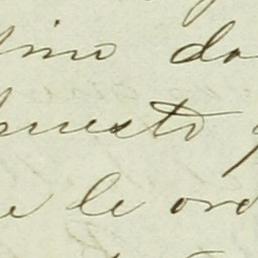 tino do
puesto
e le ord